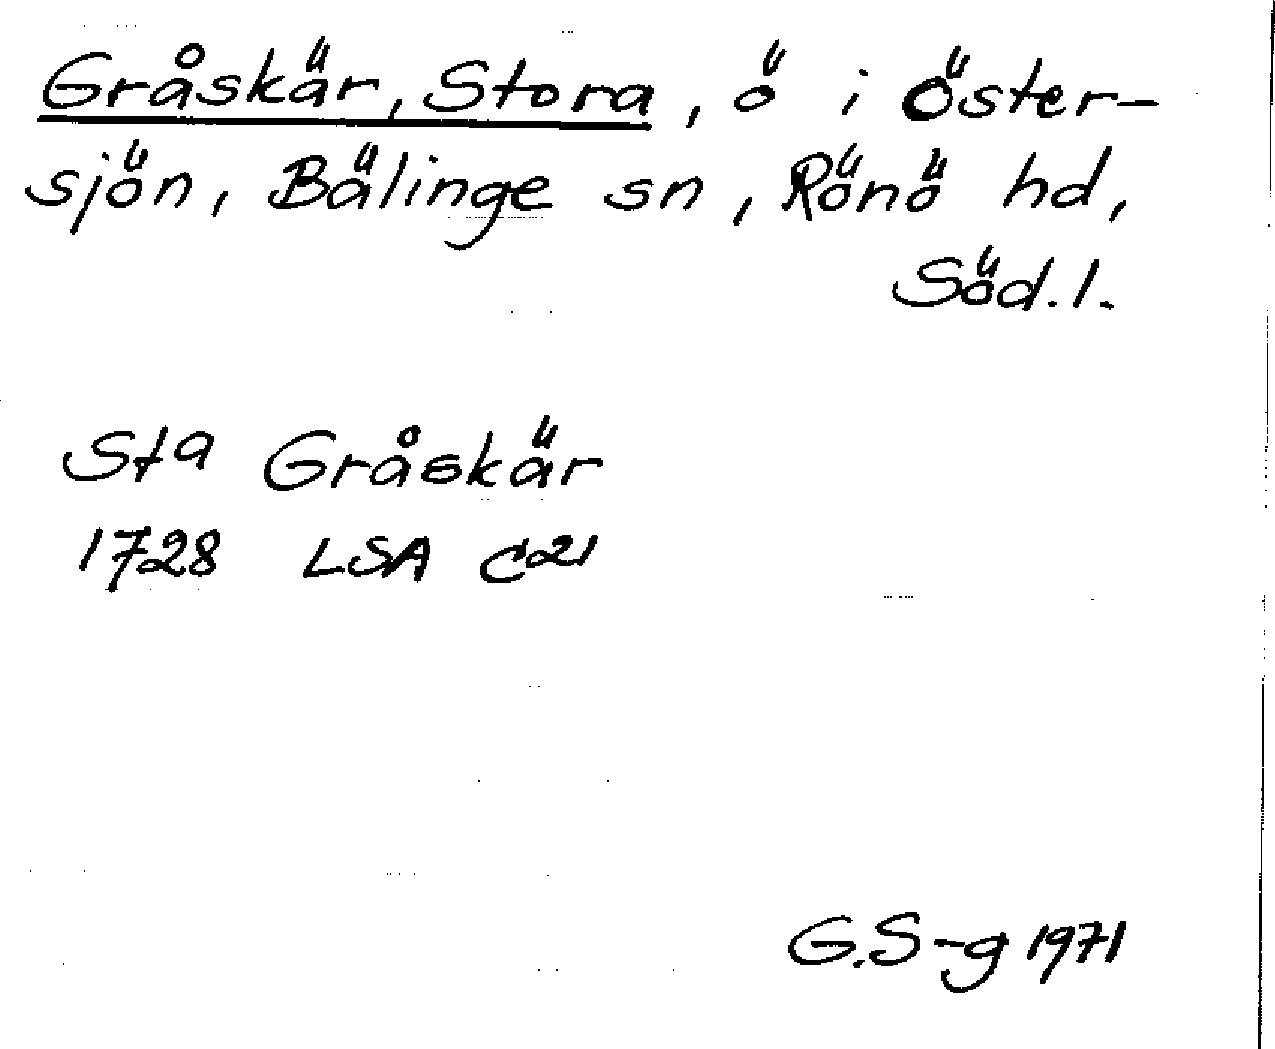 Gråskär, Stora, ö i Öster-
sjön, Bälinge sn, Rönö hd,
Söd.l.
Sta Gråskär
1728 LSA C21
G.S-g 1971